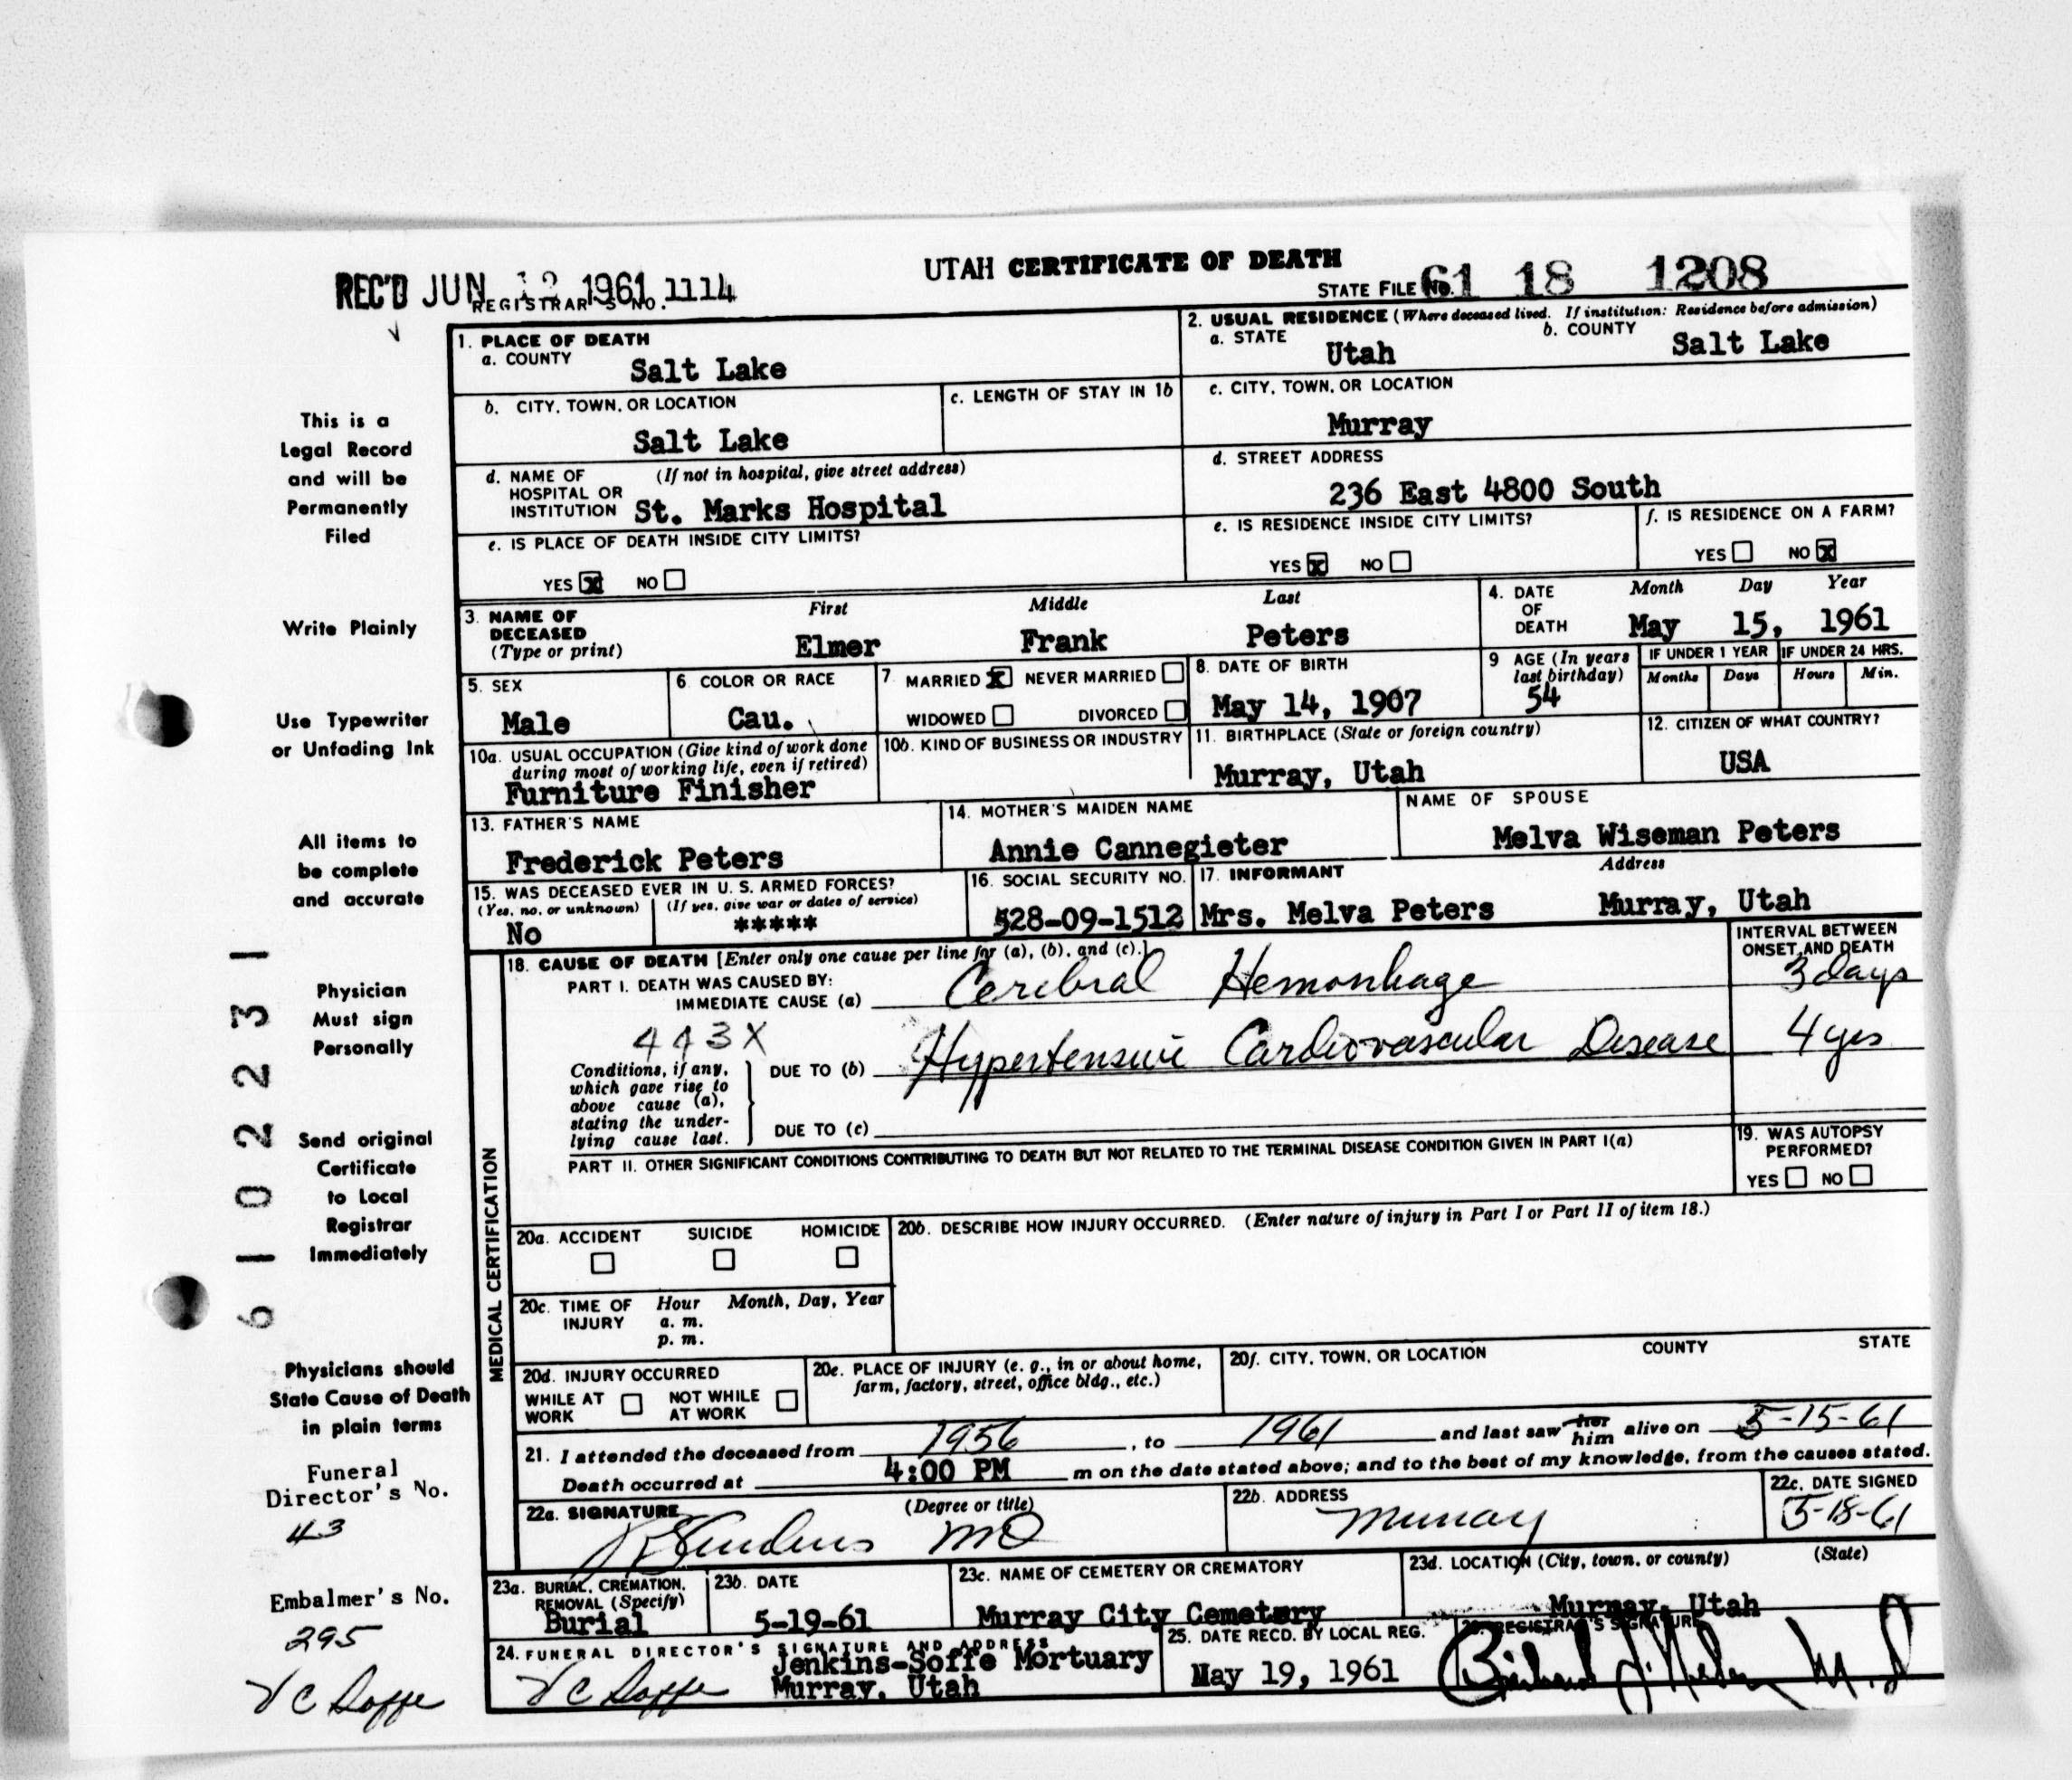 UTAH CERTIFICATE OF DEATH
REC'D JUN 12 1961
REGISTRAR'S NO. 1114
STATE FILE No. 61 18 1208
This is a
Legal Record
and will be
Permanently
Filed
Write Plainly
Use Typewriter
or Unfading Ink
All items to
be complete
and accurate
Physician
Must sign
Personally
Send original
Certificate
to Local
Registrar
Immediately
Physicians should
State Cause of Death
in plain terms
Funeral
Director's No.
43
Embalmer's No.
295
V C Soffe
6 1 0 2 2 3 1
1. PLACE OF DEATH
a. COUNTY
Salt Lake
b. CITY, TOWN, OR LOCATION
Salt Lake
c. LENGTH OF STAY IN 1b
d. NAME OF (If not in hospital, give street address)
HOSPITAL OR
INSTITUTION St. Marks Hospital
e. IS PLACE OF DEATH INSIDE CITY LIMITS?
YES x NO
2. USUAL RESIDENCE (Where deceased lived. If institution: Residence before admission)
a. STATE Utah b. COUNTY Salt Lake
c. CITY, TOWN, OR LOCATION
Murray
d. STREET ADDRESS
236 East 4800 South
e. IS RESIDENCE INSIDE CITY LIMITS?
YES x NO
f. IS RESIDENCE ON A FARM?
YES NO x
3. NAME OF
DECEASED
(Type or print)
First Middle Last
Elmer Frank Peters
4. DATE
OF
DEATH
Month Day Year
May 15, 1961
5. SEX
Male
6. COLOR OR RACE
Cau.
7. MARRIED x NEVER MARRIED
WIDOWED DIVORCED
8. DATE OF BIRTH
May 14, 1907
9 AGE (In years
last birthday)
54
IF UNDER 1 YEAR
Months Days
IF UNDER 24 HRS.
Hours Min.
10a. USUAL OCCUPATION (Give kind of work done
during most of working life, even if retired)
Furniture Finisher
10b. KIND OF BUSINESS OR INDUSTRY
11. BIRTHPLACE (State or foreign country)
Murray, Utah
12. CITIZEN OF WHAT COUNTRY?
USA
13. FATHER'S NAME
Frederick Peters
14. MOTHER'S MAIDEN NAME
Annie Cannegieter
NAME OF SPOUSE
Melva Wiseman Peters
15. WAS DECEASED EVER IN U. S. ARMED FORCES?
(Yes, no, or unknown) (If yes, give war or dates of service)
No *****
16. SOCIAL SECURITY NO.
528-09-1512
17. INFORMANT Address
Mrs. Melva Peters Murray, Utah
MEDICAL CERTIFICATION
18. CAUSE OF DEATH [Enter only one cause per line for (a), (b), and (c).]
INTERVAL BETWEEN
ONSET AND DEATH
PART I. DEATH WAS CAUSED BY:
IMMEDIATE CAUSE (a) Cerebral Hemorrhage 3 days
443X
Conditions, if any,
which gave rise to
above cause (a),
stating the under-
lying cause last.
DUE TO (b) Hypertensive Cardiovascular Disease 4 yrs
DUE TO (c)
PART II. OTHER SIGNIFICANT CONDITIONS CONTRIBUTING TO DEATH BUT NOT RELATED TO THE TERMINAL DISEASE CONDITION GIVEN IN PART I(a)
19. WAS AUTOPSY
PERFORMED?
YES NO
20a. ACCIDENT SUICIDE HOMICIDE
20b. DESCRIBE HOW INJURY OCCURRED. (Enter nature of injury in Part I or Part II of item 18.)
20c. TIME OF Hour Month, Day, Year
INJURY a. m.
p. m.
20d. INJURY OCCURRED
WHILE AT NOT WHILE
WORK AT WORK
20e. PLACE OF INJURY (e. g., in or about home,
farm, factory, street, office bldg., etc.)
20f. CITY, TOWN, OR LOCATION COUNTY STATE
21. I attended the deceased from 1956, to 1961 and last saw her him alive on 5-15-61
Death occurred at 4:00 PM m on the date stated above; and to the best of my knowledge, from the causes stated.
22a. SIGNATURE (Degree or title)
MD
22b. ADDRESS
Murray
22c. DATE SIGNED
5-18-61
23a. BURIAL, CREMATION,
REMOVAL (Specify)
Burial
23b. DATE
5-19-61
23c. NAME OF CEMETERY OR CREMATORY
Murray City Cemetery
23d. LOCATION (City, town, or county) (State)
Murray, Utah
24. FUNERAL DIRECTOR'S SIGNATURE AND ADDRESS
V C Soffe Jenkins-Soffe Mortuary
Murray, Utah
25. DATE RECD. BY LOCAL REG.
May 19, 1961
26. REGISTRAR'S SIGNATURE
M.D